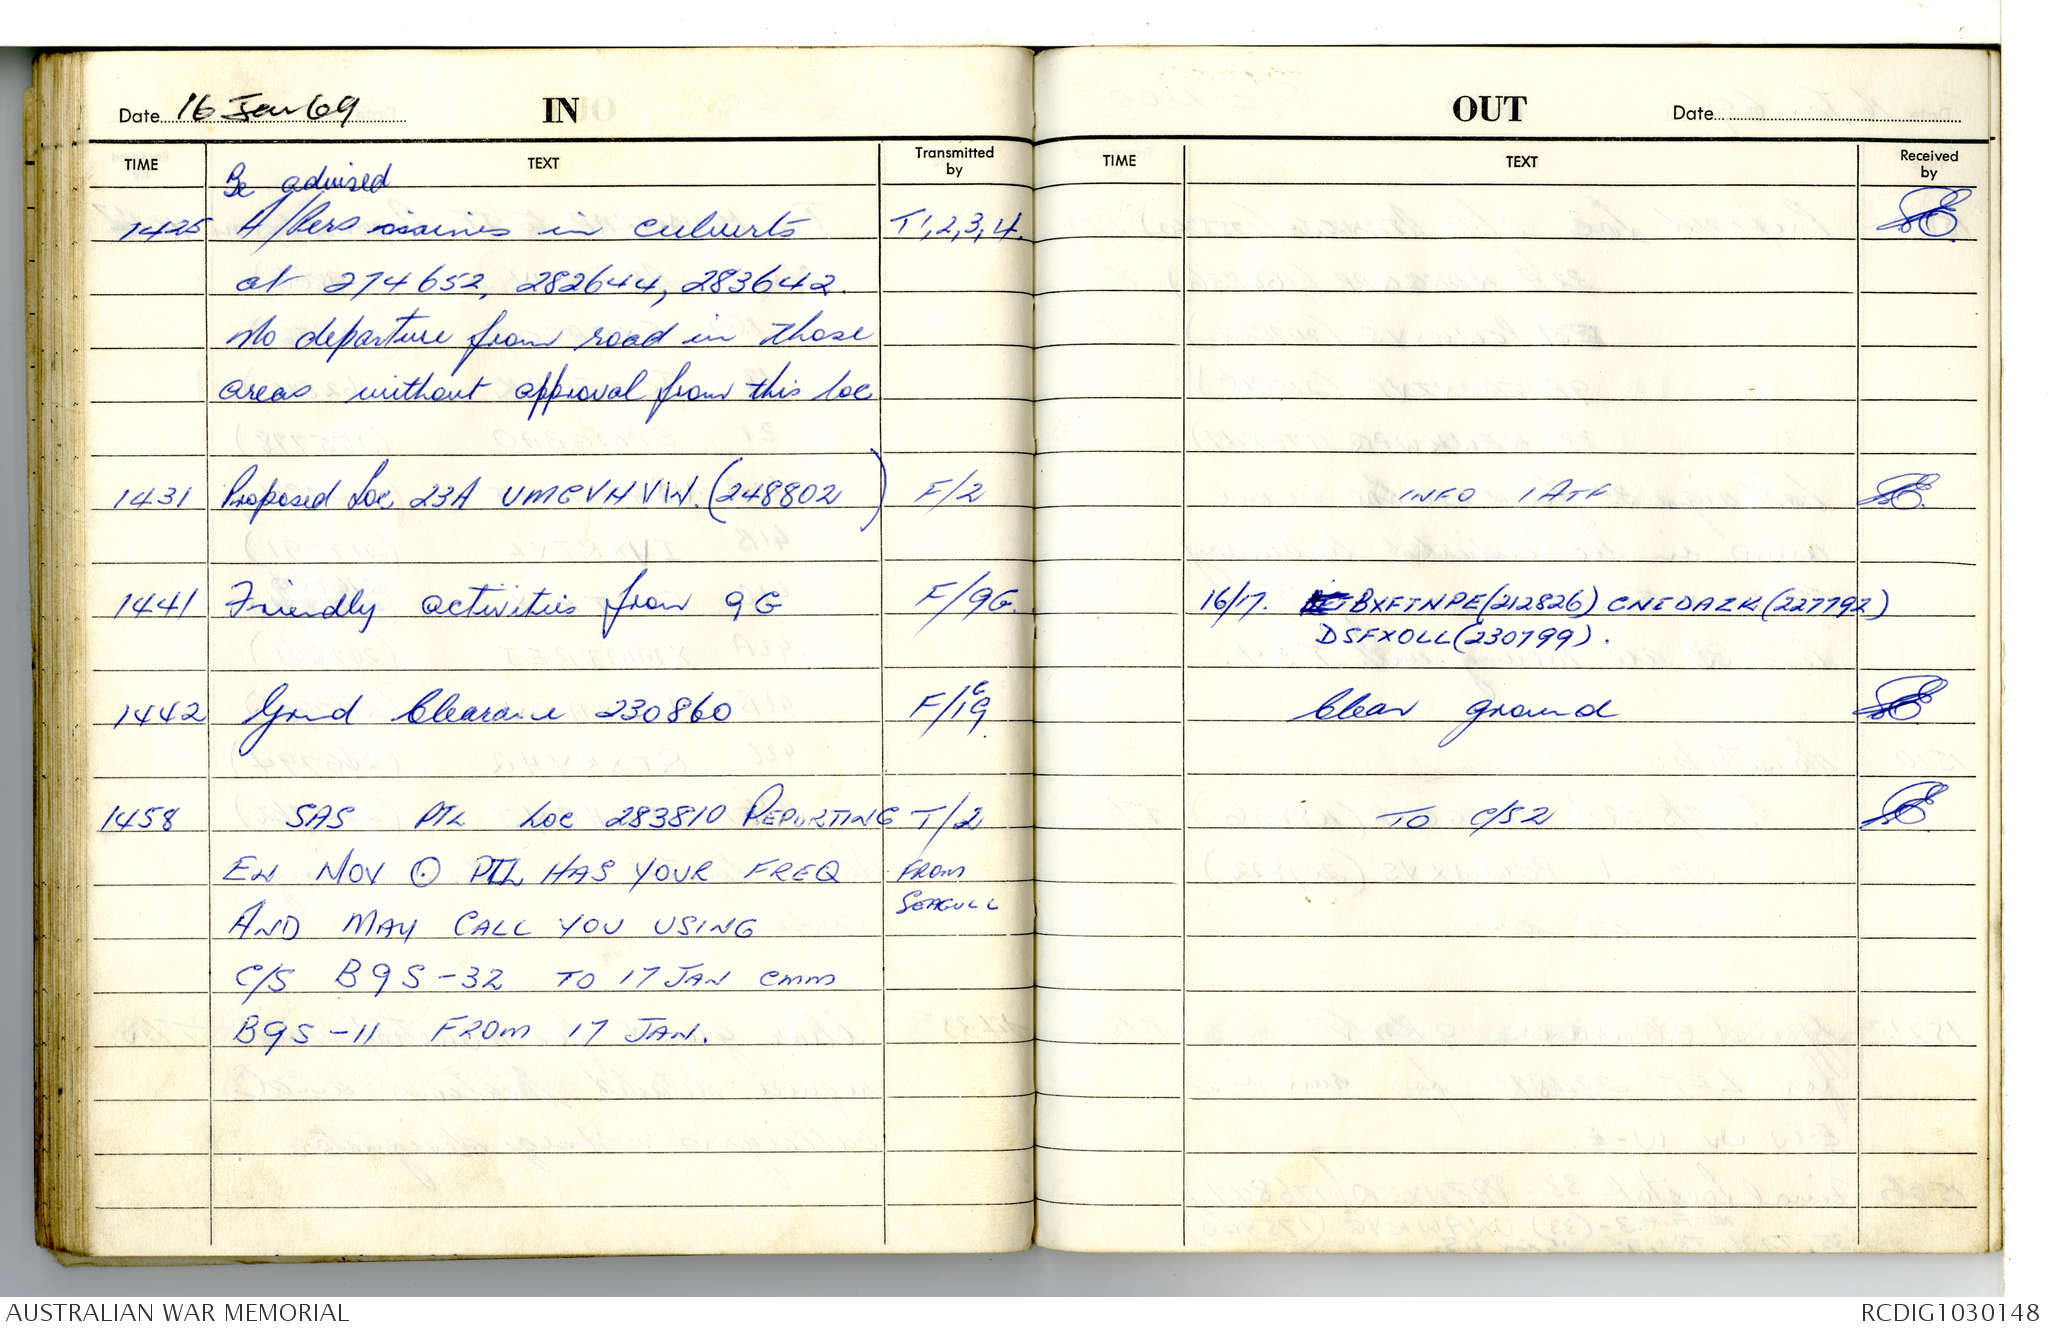 Date 16 Jan 69
IN
TIME
TEXT
Transmitted
by
Be advised
1425 A/Pers mines in culverts T1,2,3,4.
at 274652, 282644, 283642.
No departure from road in those
areas without approval from this loc
1431 Proposed Loc 23A UMCVHVW. (248802) F/2
1441 Friendly activities from 9G F/9G.
1442 Grnd Clearance 230860 F/19
1458 SAS PTL LOC 283810 REPORTING T/2
EN MOV ⊙ PTL HAS YOUR FREQ FROM
AND MAY CALL YOU USING SEAGULL
C/S B9S-32 TO 17 JAN CMM
B9S-11 FROM 17 JAN.
OUT
Date
TIME
TEXT
Received
by
INFO 1 ATF
16/17. BXFTNPE(212826) CNEDAZK(227792)
DSFXOLL(230799).
Clear ground
TO C/S2
AUSTRALIAN WAR MEMORIAL
RCDIG1030148